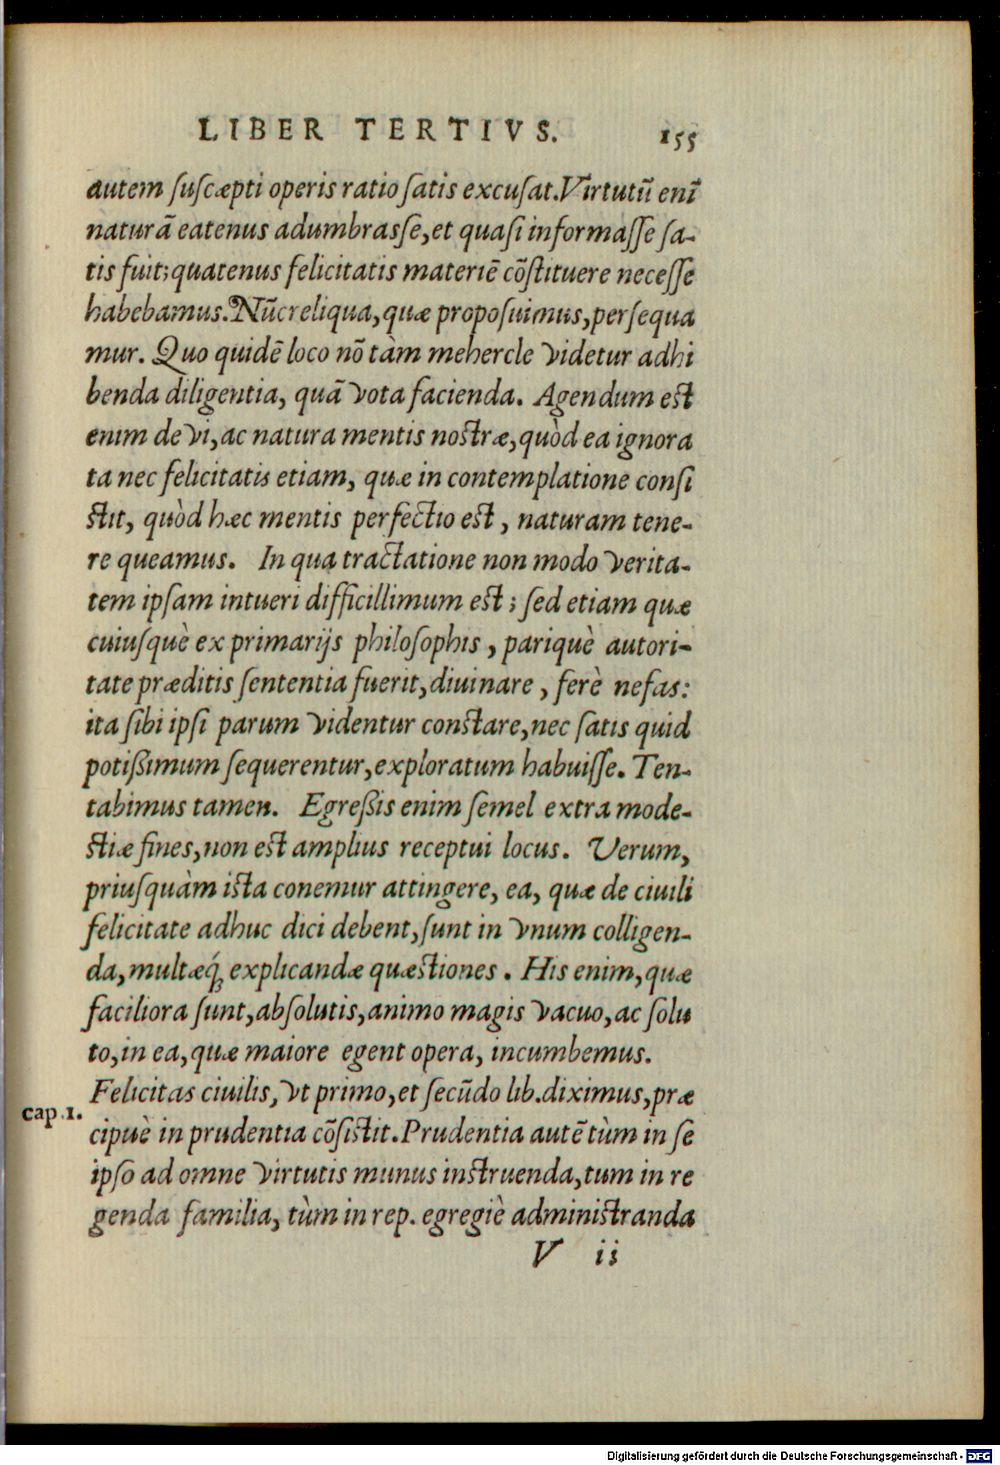 LIBER TERTIVS. 155
autem ſuſcæpti operis ratio ſatis excuſat.Virtutũ enĩ
naturã eatenus adumbraſſe,et quaſi informaſſe ſa-
tis fuit;quatenus felicitatis materiẽ cõſtituere neceſſe
habebamus.Nũc reliqua,quæ propoſuimus,perſequa
mur. Quo quidẽ loco nõ tàm mehercle videtur adhi
benda diligentia, quã vota facienda. Agendum eſt
enim de vi,ac natura mentis noſtræ,quòd ea ignora
ta nec felicitatis etiam, quæ in contemplatione conſi
ſtit, quòd hæc mentis perfectio eſt, naturam tene-
re queamus. In qua tractatione non modo verita-
tem ipſam intueri difficillimum eſt; ſed etiam quæ
cuiuſquè ex primarijs philoſophis, pariquè autori-
tate præditis ſententia fuerit,diuinare, ferè nefas:
ita ſibi ipſi parum videntur conſtare,nec ſatis quid
potiſsimum ſequerentur,exploratum habuiſſe. Ten-
tabimus tamen. Egreſsis enim ſemel extra mode-
ſtiæ fines,non eſt amplius receptui locus. Verum,
priuſquàm iſta conemur attingere, ea, quæ de ciuili
felicitate adhuc dici debent,ſunt in vnum colligen-
da,multæq́; explicandæ quæſtiones. His enim,quæ
faciliora ſunt,abſolutis,animo magis vacuo,ac ſolu
to,in ea,quæ maiore egent opera, incumbemus.
Felicitas ciuilis, vt primo,et ſecũdo lib.diximus,præ
cap.1.
cipuè in prudentia cõſiſtit.Prudentia autẽ tùm in ſe
ipſo ad omne virtutis munus inſtruenda,tum in re
genda familia, tùm in rep. egregiè adminiſtranda
V ii
Digitalisierung gefördert durch die Deutsche Forschungsgemeinschaft - DFG